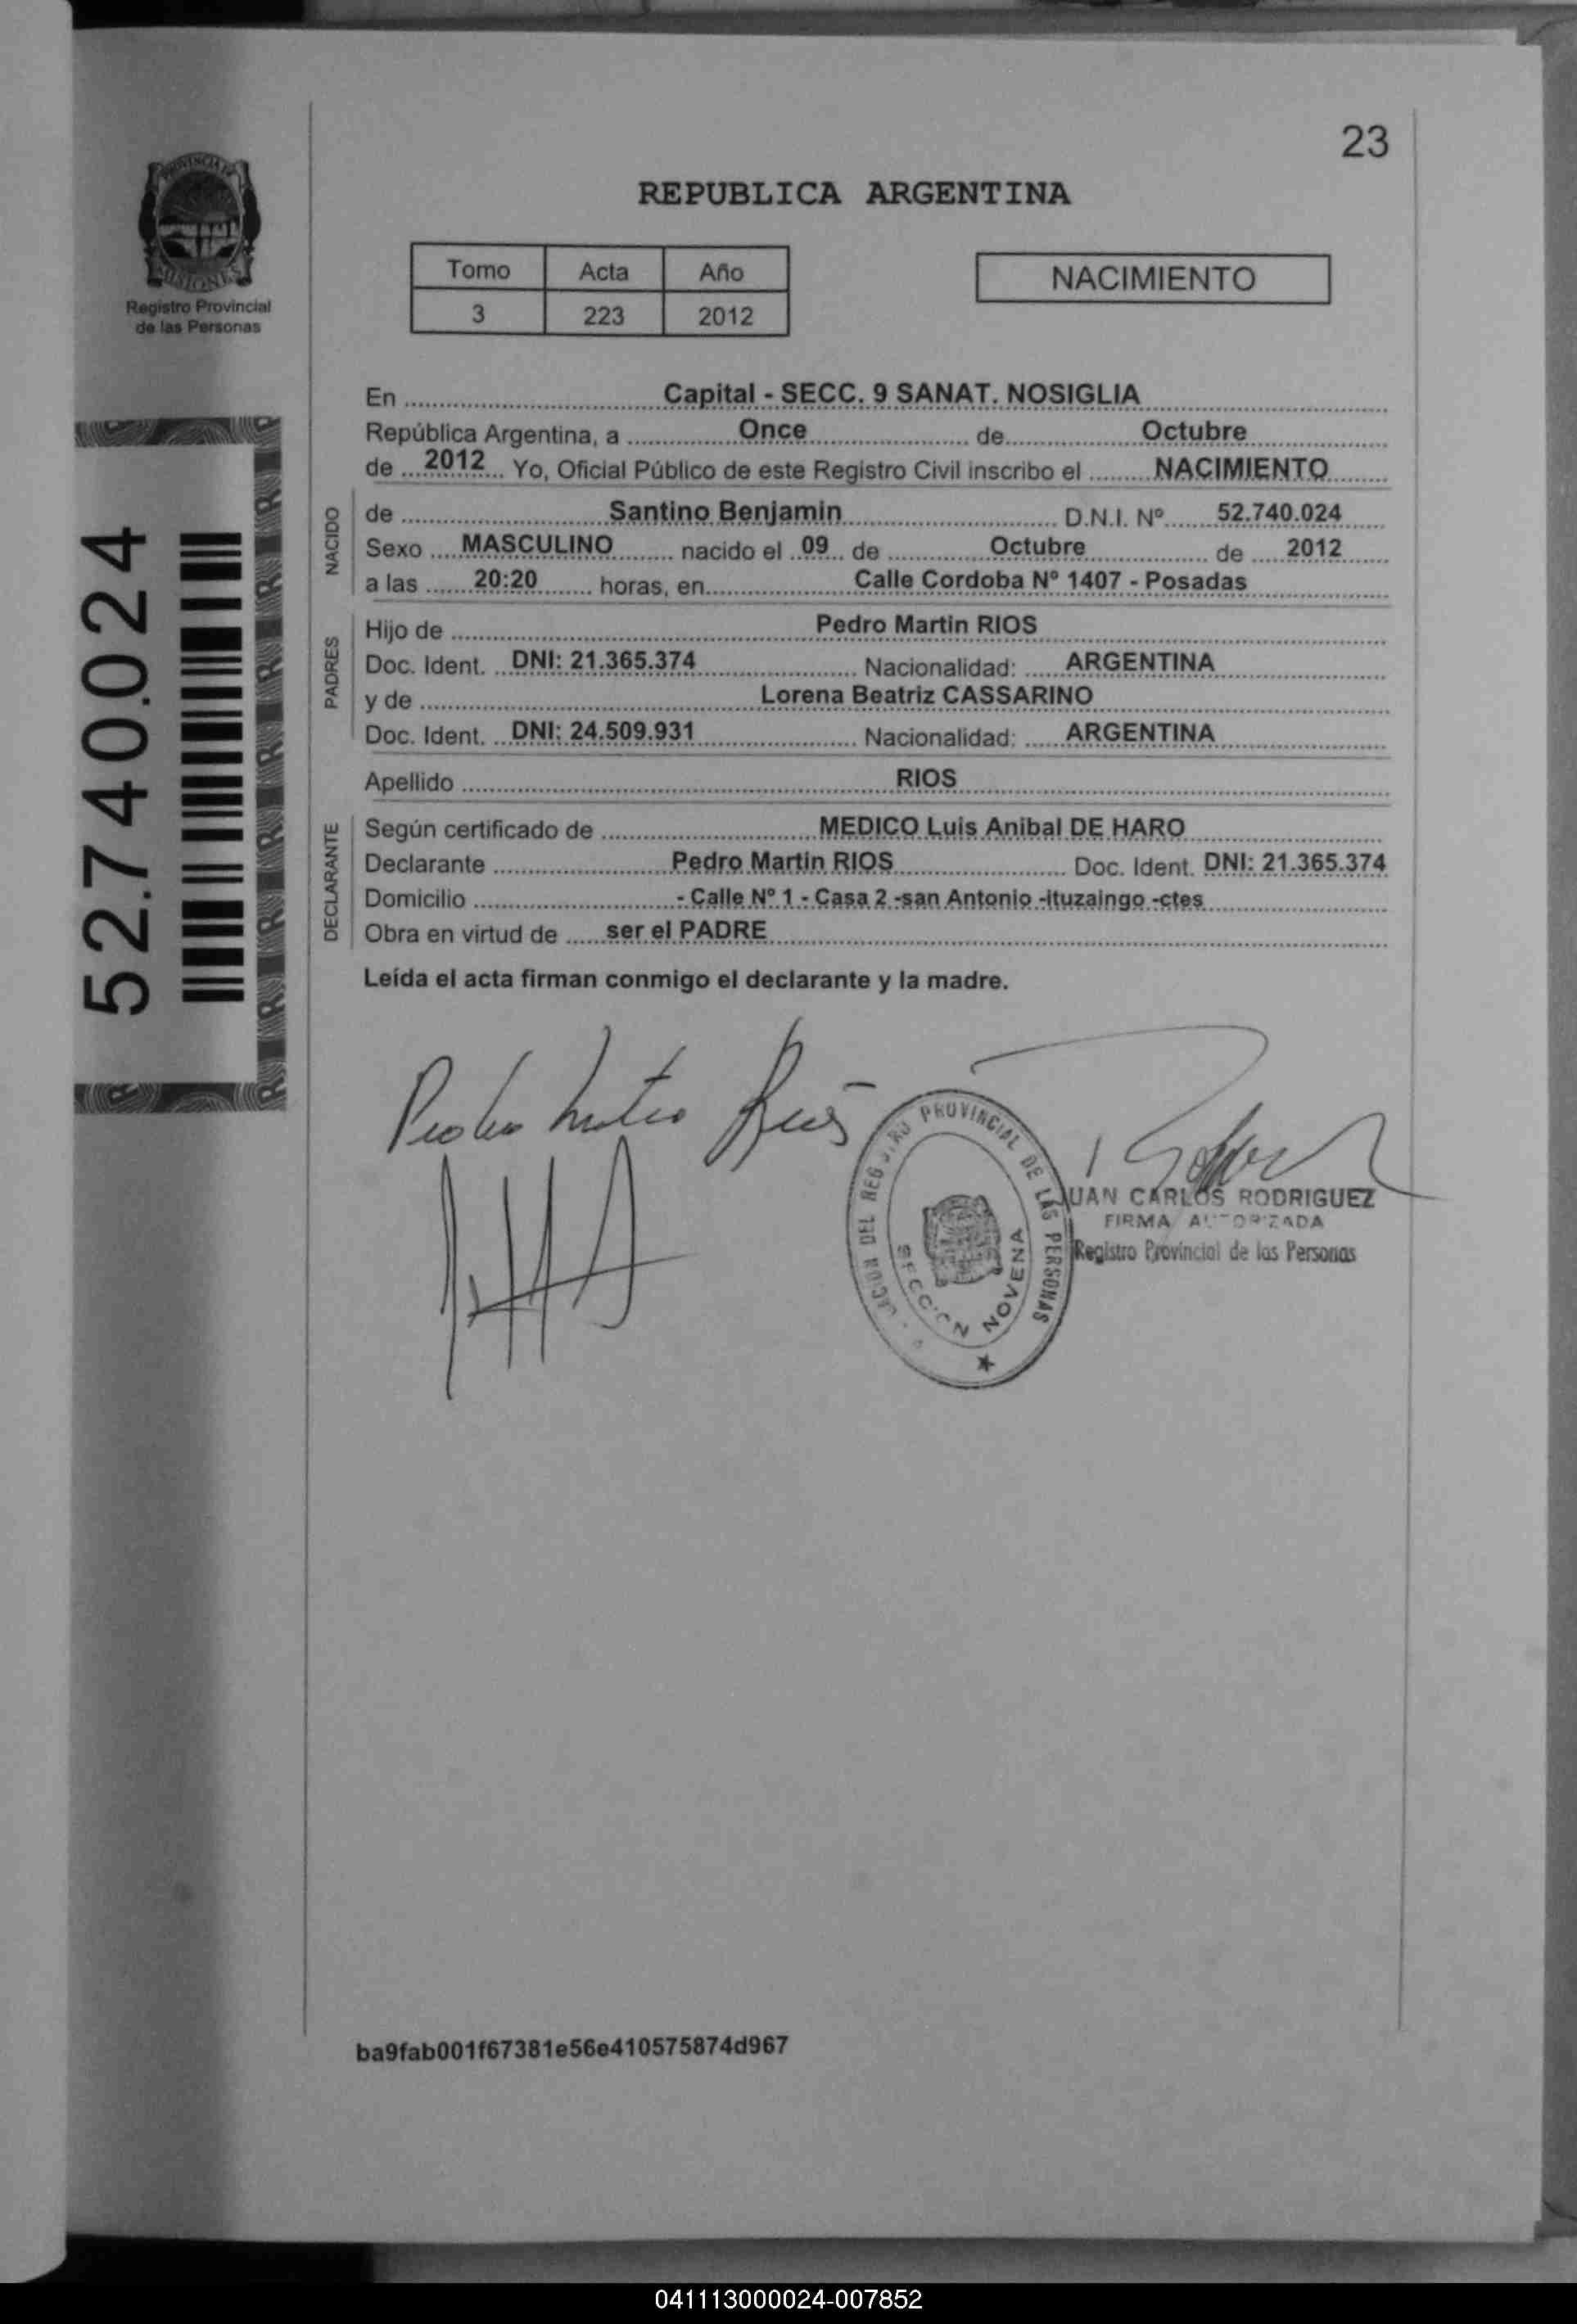 23
PROVINCIA DE
MISIONES
Registro Provincial
de las Personas
REPUBLICA ARGENTINA
Tomo Acta Año
3 223 2012
NACIMIENTO
52.740.024
En Capital - SECC. 9 SANAT. NOSIGLIA
República Argentina, a Once de Octubre
de 2012 Yo, Oficial Público de este Registro Civil inscribo el NACIMIENTO
NACIDO
de Santino Benjamin D.N.I. Nº 52.740.024
Sexo MASCULINO nacido el 09 de Octubre de 2012
a las 20:20 horas, en Calle Cordoba Nº 1407 - Posadas
PADRES
Hijo de Pedro Martin RIOS
Doc. Ident. DNI: 21.365.374 Nacionalidad: ARGENTINA
y de Lorena Beatriz CASSARINO
Doc. Ident. DNI: 24.509.931 Nacionalidad: ARGENTINA
Apellido RIOS
DECLARANTE
Según certificado de MEDICO Luis Anibal DE HARO
Declarante Pedro Martin RIOS Doc. Ident. DNI: 21.365.374
Domicilio - Calle Nº 1 - Casa 2 -san Antonio -ituzaingo -ctes
Obra en virtud de ser el PADRE
Leída el acta firman conmigo el declarante y la madre.
Pedro Martin Rios
PROVINCIAL DE LAS PERSONAS
SECCION NOVENA
JUAN CARLOS RODRIGUEZ
FIRMA AUTORIZADA
Registro Provincial de las Personas
ba9fab001f67381e56e410575874d967
041113000024-007852